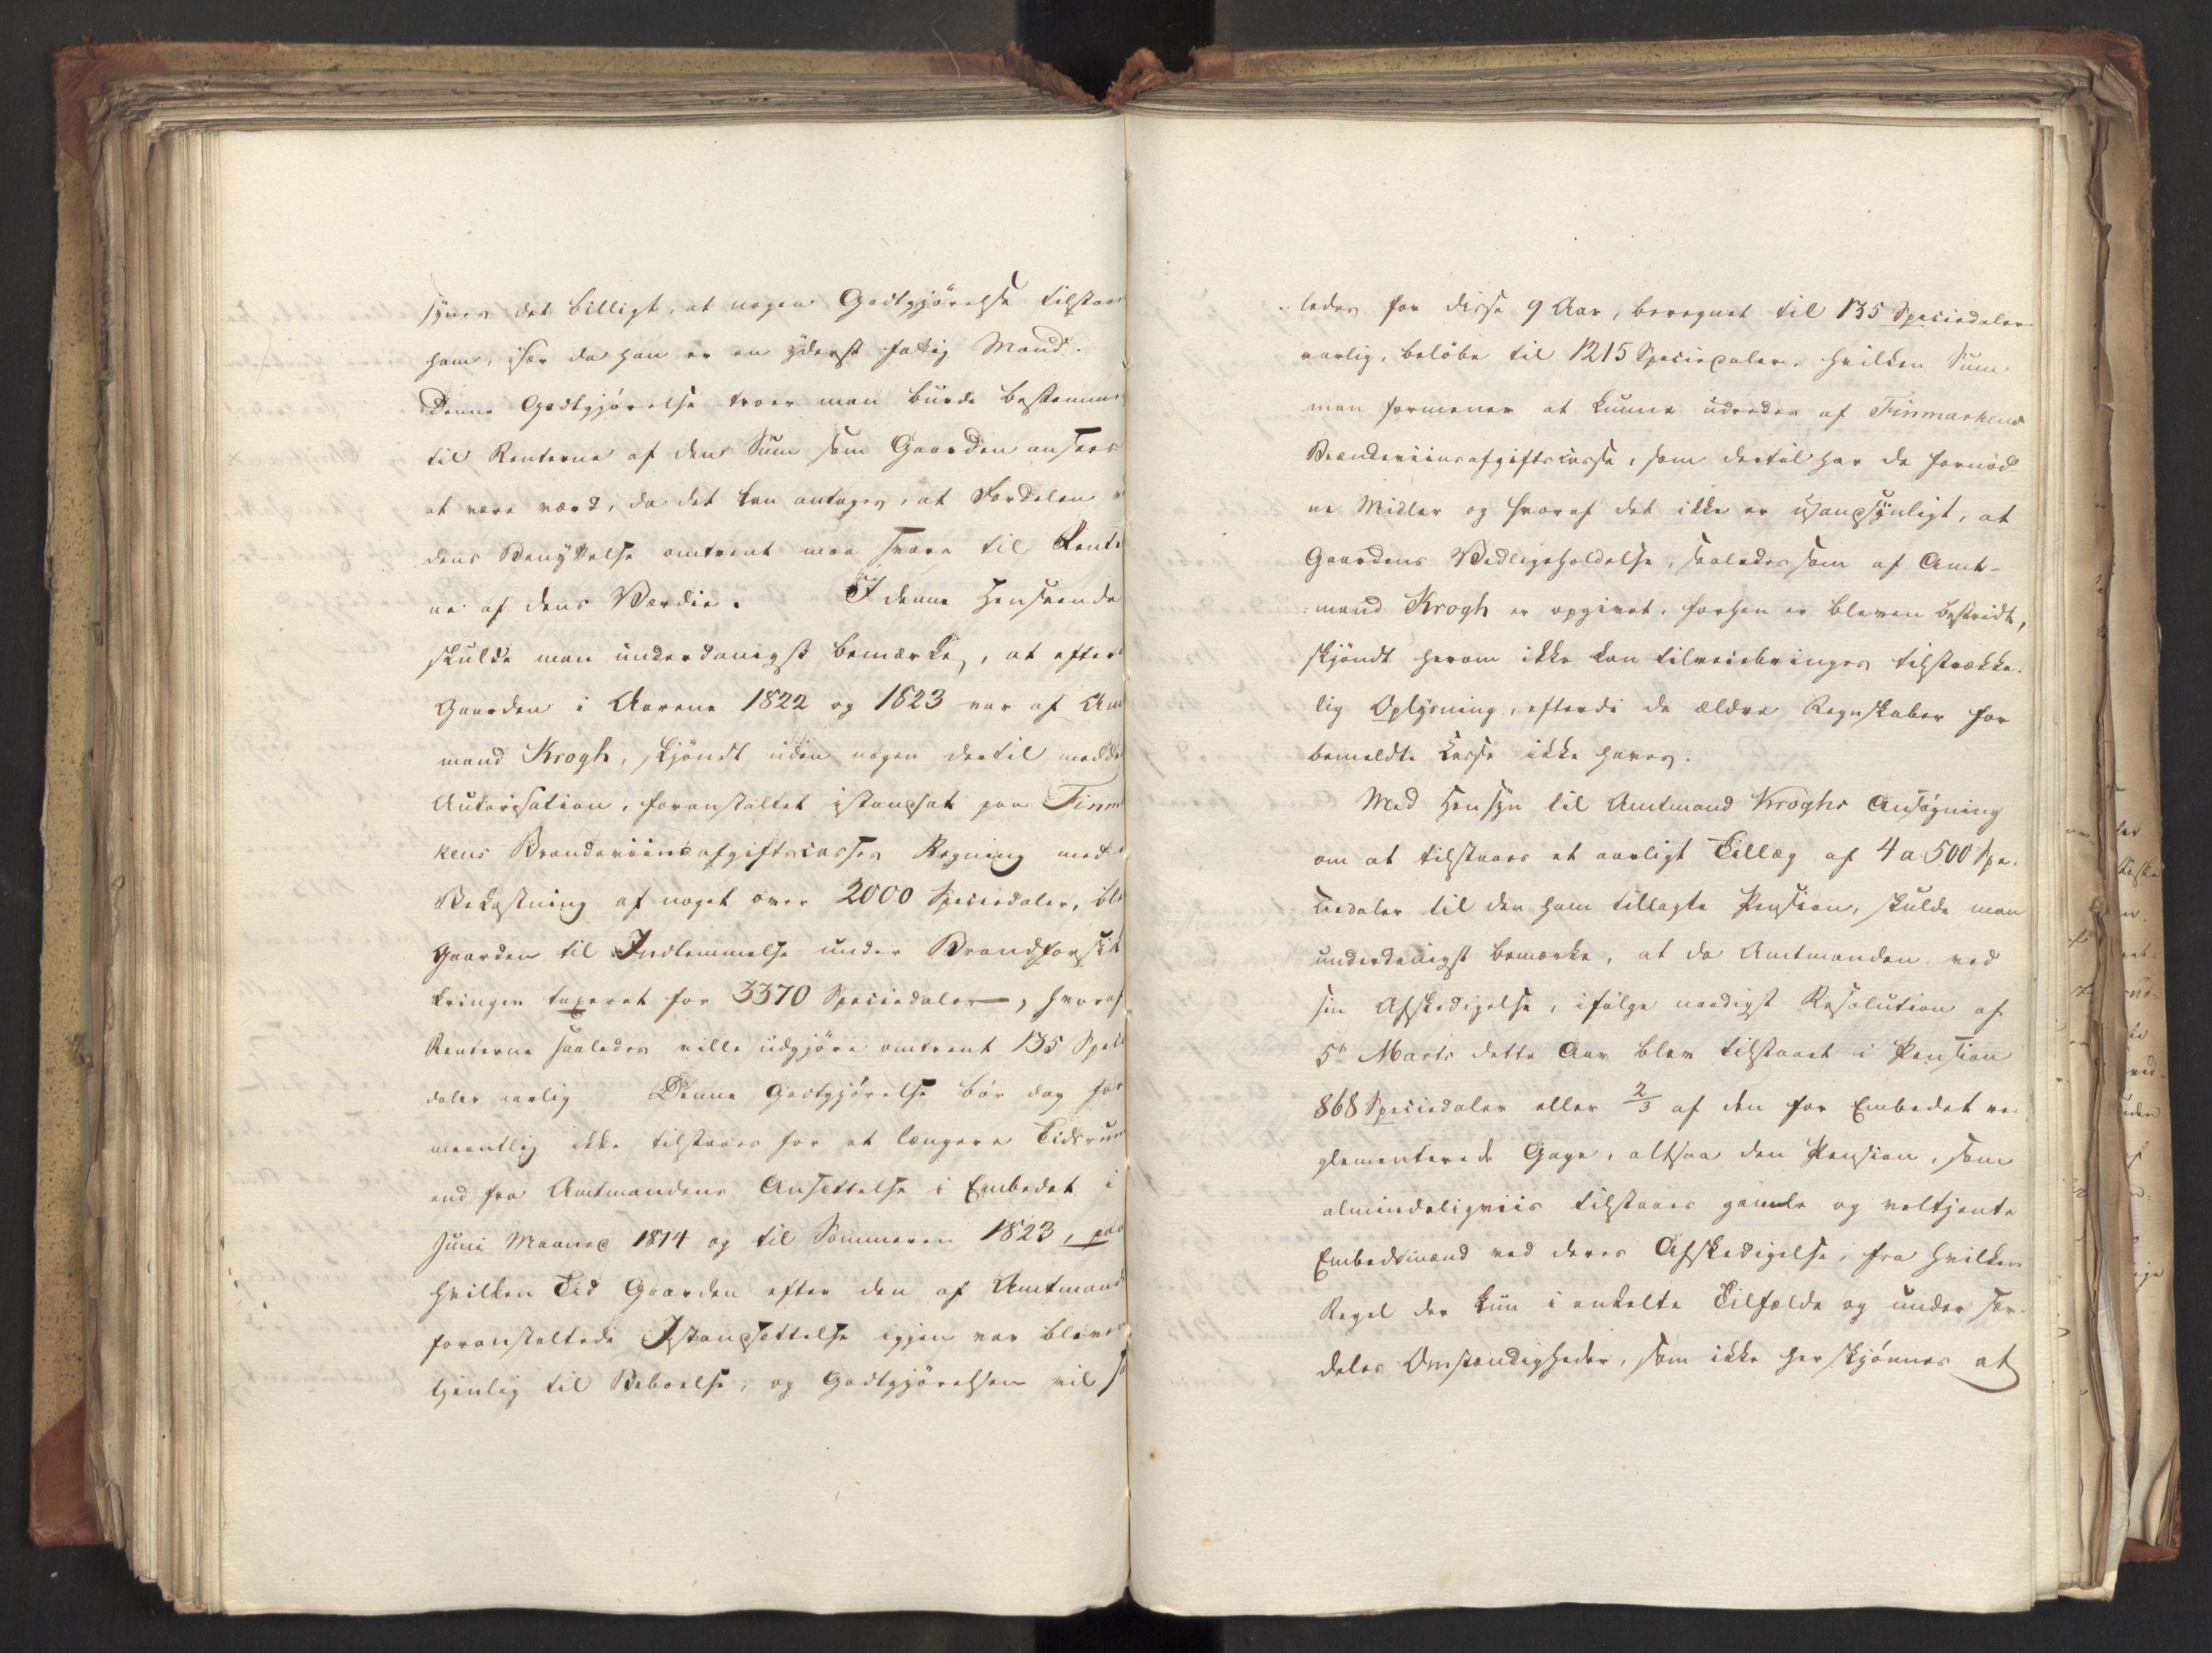 synes det billigt, at nogen Godtgjörelse tilstaaes
ham, især da han er en yderst fattig Mand.
Denne Godtgjörelse troer man burde bestemmes
til Renterne af den Sum som Gaarden ansees
at være værd, da det kan antages, at Fordelen
dens Benyttelse omtrent maa svare til Rente
ne af dens Værdie. I denne Henseende
skulde man underdanigst bemærke, at efter
Gaarden i Aarene 1822 og 1823 var af Amt
mand Krogh, skjöndt uden nogen dertil meddelt
Autorisation, foranstaltet istandsat paa Finm
kens Brændeviinsafgiftscasses Regning med
Bekostning af noget over 2000 Speciedaler, blev
Gaarden til Indlemmelse under Brandforsik
kringen taxeret for 3370 Speciedaler, hvoraf
Renterne saaledes ville udgjöre omtrent 135 Specie
daler aarlig. Denne Godtgjörelse bör dog for
meentlig ikke tilstaaes for et længere Tidsrum
end fra Amtmandens Ansættelse i Embedet i
Juni Maaned 1814 og til Sommeren 1823, paa
hvilken Tid Gaarden efter den af Amtmand
foranstaltede Istandsættelse igjen var bleven
tjenlig til Beboelse, og Godtgjörelsen vil saa
ledes for disse 9 Aar, beregnet til 135 Speciedaler
aarlig, belöbe til 1215 Speciedaler, hvilken Sum
man formener at kunne udredes af Finmarkens
Brændeviinsafgiftscasse, som dertil har de fornöd
ne Midler og hvoraf det ikke er usandsynligt, at
Gaardens Vedligeholdelse, saaledes som af Amt-
mand Krogh er opgivet, forhen er bleven bestridt,
skjöndt herom ikke kan tilveiebringes tilstrække-
lig Oplysning, efterdi de ældre Regnskaber for
bemeldte Casse ikke haves.
Med Hensyn til Amtmand Kroghs Ansögning
om at tilstaaes et aarligt Tillæg af 4 a 500 Spe-
ciedaler til den ham tillagte Pension, skulde man
underdanigst bemærke, at da Amtmanden ved
sin Afskedigelse, ifölge naadigst Resolution af
5te Marts dette Aar blev tilstaaet i Pension
868 Speciedaler eller 2/3 af den for Embedet re-
glementerede Gage, altsaa den Pension, som
almindeligviis tilstaaes gamle og veltjente
Embedsmænd ved deres Afskedigelse, fra hvilken
Regel der kun i enkelte Tilfælde og under sær-
deles Omstændigheder, som ikke her skjönnes at